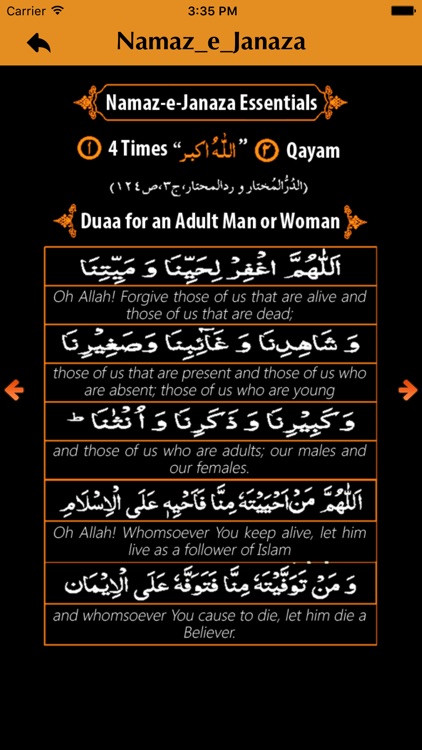 Carrier 3:35 PM
Namaz_e_Janaza
Namaz-e-Janaza Essentials
۱ 4 Times “اَللّٰهُ اَكْبَر” ۲ Qayam
(الدُرُّالمُختار و ردالمحتار،ج۳،ص۱۲٤)
Duaa for an Adult Man or Woman
اَللّٰهُمَّ اغْفِرْ لِحَيِّنَا وَ مَيِّتِنَا
Oh Allah! Forgive those of us that are alive and
those of us that are dead;
وَ شَاهِدِنَا وَ غَآئِبِنَا وَصَغِيْرِنَا
those of us that are present and those of us who
are absent; those of us who are young
وَ كَبِيْرِنَا وَ ذَكَرِنَا وَ اُنْثٰنَا ؕ
and those of us who are adults; our males and
our females.
اَللّٰهُمَّ مَنْ اَحْيَيْتَهٗ مِنَّا فَاَحْيِهٖ عَلَى الْاِسْلَامِ
Oh Allah! Whomsoever You keep alive, let him
live as a follower of Islam
وَ مَنْ تَوَفَّيْتَهٗ مِنَّا فَتَوَفَّهٗ عَلَى الْاِيْمَان
and whomsoever You cause to die, let him die a
Believer.